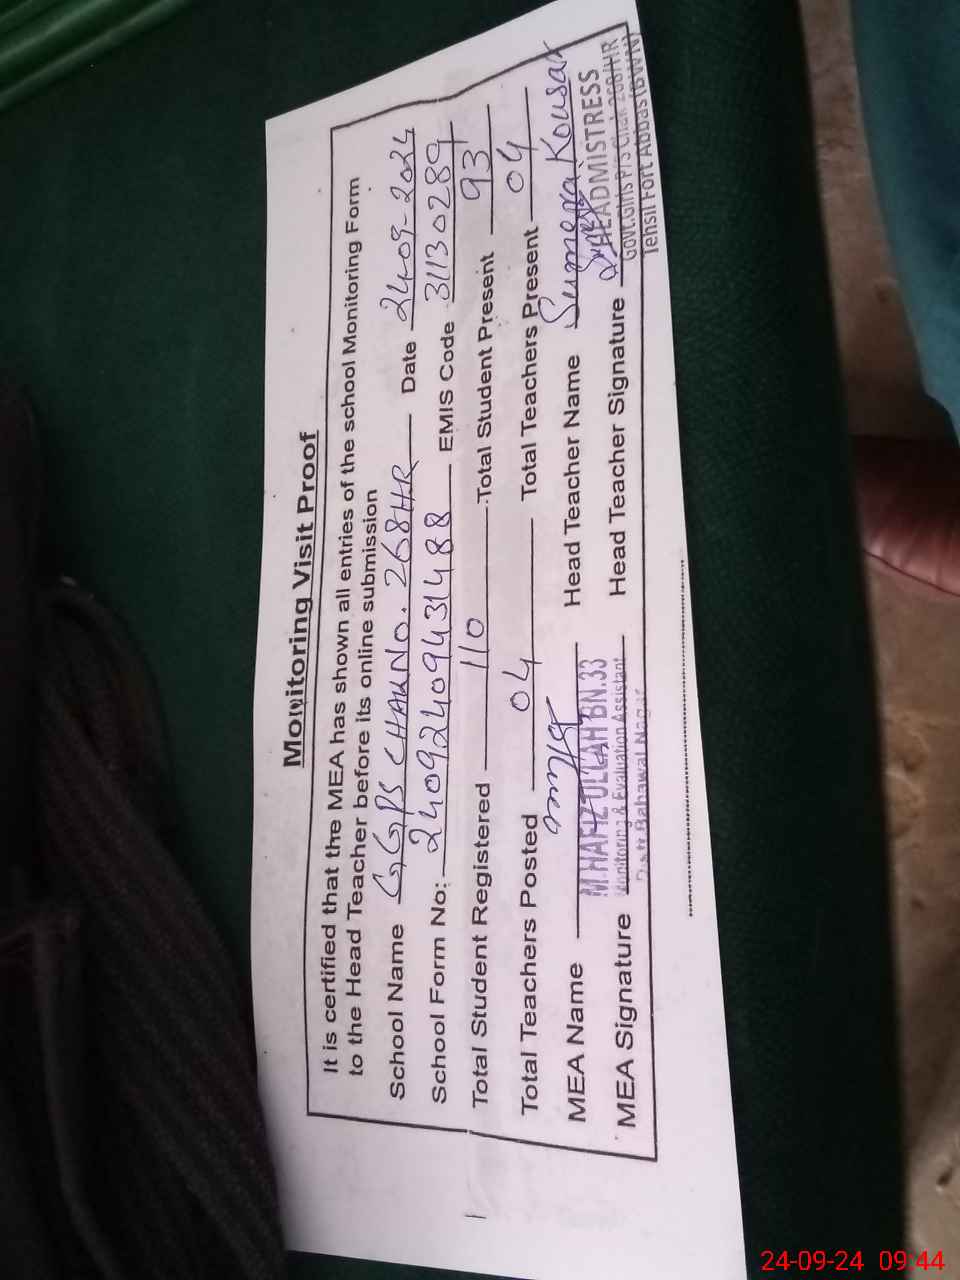 Monitoring Visit Proof
It is certified that the MEA has shown all entries of the school Monitoring Form
to the Head Teacher before its online submission
School Name GGPS CHAK No. 268HR Date 24-09-2024
School Form No: 24092409431488 EMIS Code 31130289
Total Student Registered 110 Total Student Present 93
Total Teachers Posted 04 Total Teachers Present 04
MEA Name Head Teacher Name Sumera Kousar
MEA Signature M.HAFIZ ULLAH BN.33 Head Teacher Signature HEADMISTRESS
Monitoring & Evaluation Assistant Govt.Girls P/S Chak 268/HR
Distt Bahawal Nagar Tehsil Fort Abbas (BWN)
24-09-24 09:44